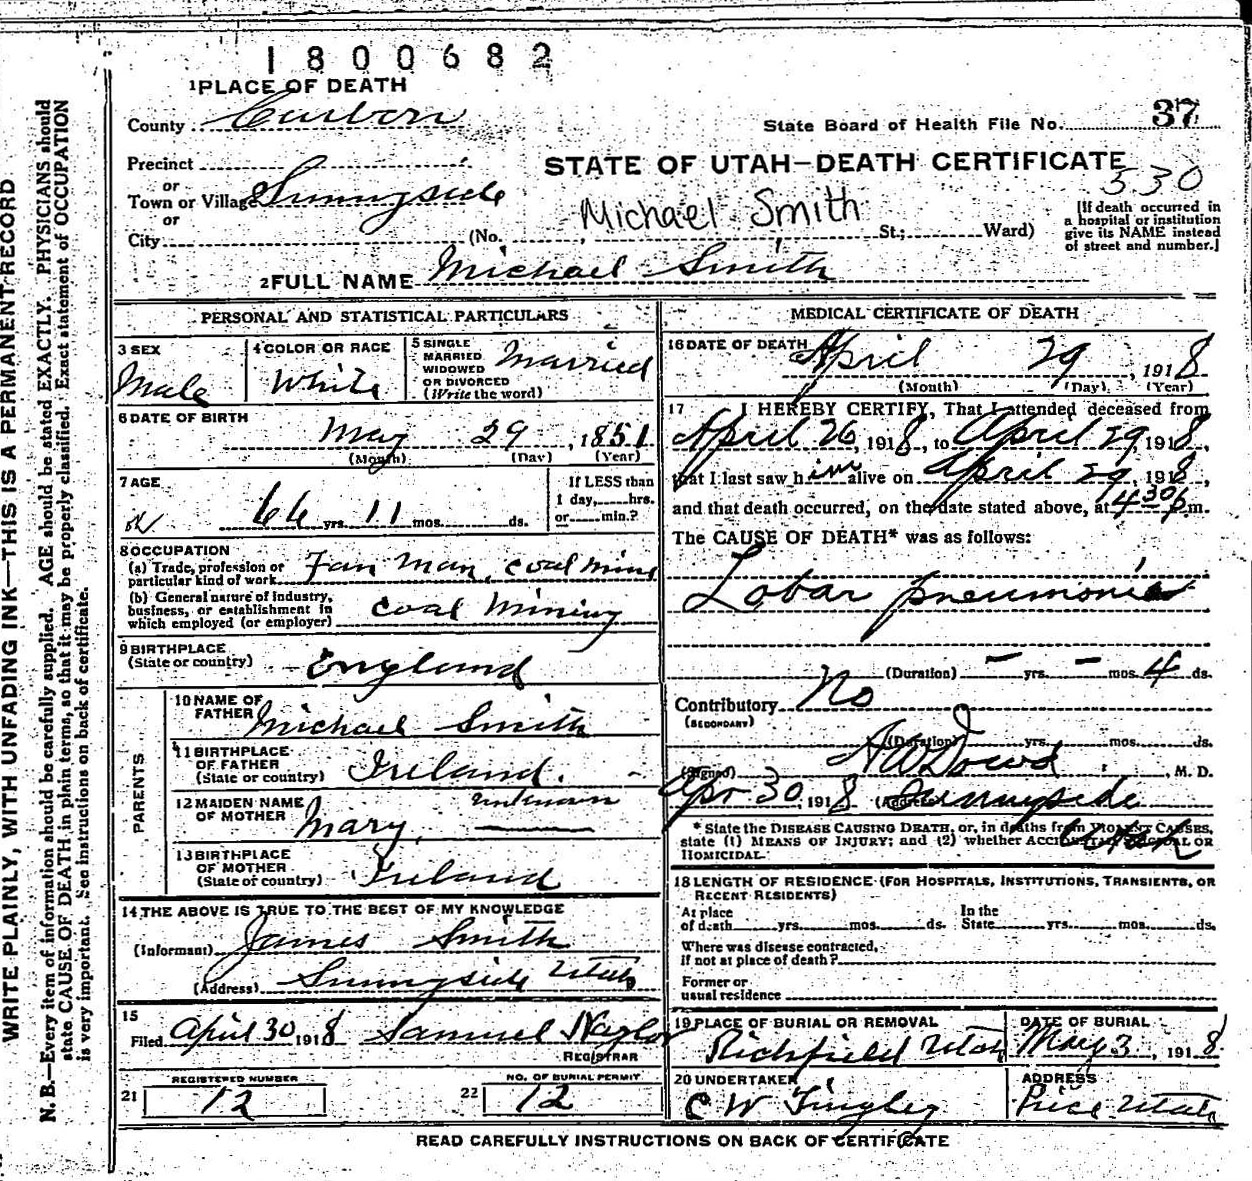 1800682
1 PLACE OF DEATH
County Carbon
State Board of Health File No. 37
Precinct
STATE OF UTAH—DEATH CERTIFICATE
530
or
Town or Village Sunnyside
or
Michael Smith
City (No. St.; Ward)
[If death occurred in
a hospital or institution
give its NAME instead
of street and number.]
2 FULL NAME Michael Smith
PERSONAL AND STATISTICAL PARTICULARS
3 SEX
Male
4 COLOR OR RACE
White
5 SINGLE
MARRIED
WIDOWED
OR DIVORCED
(Write the word)
Married
6 DATE OF BIRTH
May 29, 1851
(Month) (Day) (Year)
7 AGE
66 yrs. 11 mos. ds.
If LESS than
1 day, hrs.
or min.?
8 OCCUPATION
(a) Trade, profession or
particular kind of work Fan Man, coal mine
(b) General nature of industry,
business, or establishment in
which employed (or employer) Coal Mining
9 BIRTHPLACE
(State or country) England
PARENTS
10 NAME OF
FATHER Michael Smith
11 BIRTHPLACE
OF FATHER
(State or country) Ireland.
12 MAIDEN NAME
OF MOTHER Mary, unknown
13 BIRTHPLACE
OF MOTHER
(State or country) Ireland
14 THE ABOVE IS TRUE TO THE BEST OF MY KNOWLEDGE
(Informant) James Smith
(Address) Sunnyside Utah
15
Filed April 30 1918 Samuel Naylor
REGISTRAR
REGISTERED NUMBER
21 12
NO. OF BURIAL PERMIT
22 12
MEDICAL CERTIFICATE OF DEATH
16 DATE OF DEATH
April 29, 1918
(Month) (Day) (Year)
17 I HEREBY CERTIFY, That I attended deceased from
April 26, 1918, to April 29, 1918,
that I last saw him alive on April 29, 1918,
and that death occurred, on the date stated above, at 4 30 p.m.
The CAUSE OF DEATH* was as follows:
Lobar pneumonia
(Duration) – yrs. – mos. 4 ds.
Contributory No
(SECONDARY)
(Duration) yrs. mos. ds.
(Signed) A W Dowd, M. D.
Apr 30, 1918 (Address) Sunnyside
Utah
* State the DISEASE CAUSING DEATH, or, in deaths from VIOLENT CAUSES,
state (1) MEANS OF INJURY; and (2) whether ACCIDENTAL, SUICIDAL OR
HOMICIDAL.
18 LENGTH OF RESIDENCE (FOR HOSPITALS, INSTITUTIONS, TRANSIENTS, OR
RECENT RESIDENTS)
At place
of death yrs. mos. ds.
In the
State yrs. mos. ds.
Where was disease contracted,
if not at place of death?
Former or
usual residence
19 PLACE OF BURIAL OR REMOVAL
Richfield Utah
DATE OF BURIAL
May 3, 1918
20 UNDERTAKER
C W Tingley
ADDRESS
Price Utah
READ CAREFULLY INSTRUCTIONS ON BACK OF CERTIFICATE
WRITE PLAINLY, WITH UNFADING INK—THIS IS A PERMANENT RECORD
N. B.—Every item of information should be carefully supplied. AGE should be stated EXACTLY. PHYSICIANS should
state CAUSE OF DEATH in plain terms, so that it may be properly classified. Exact statement of OCCUPATION
is very important. See instructions on back of certificate.